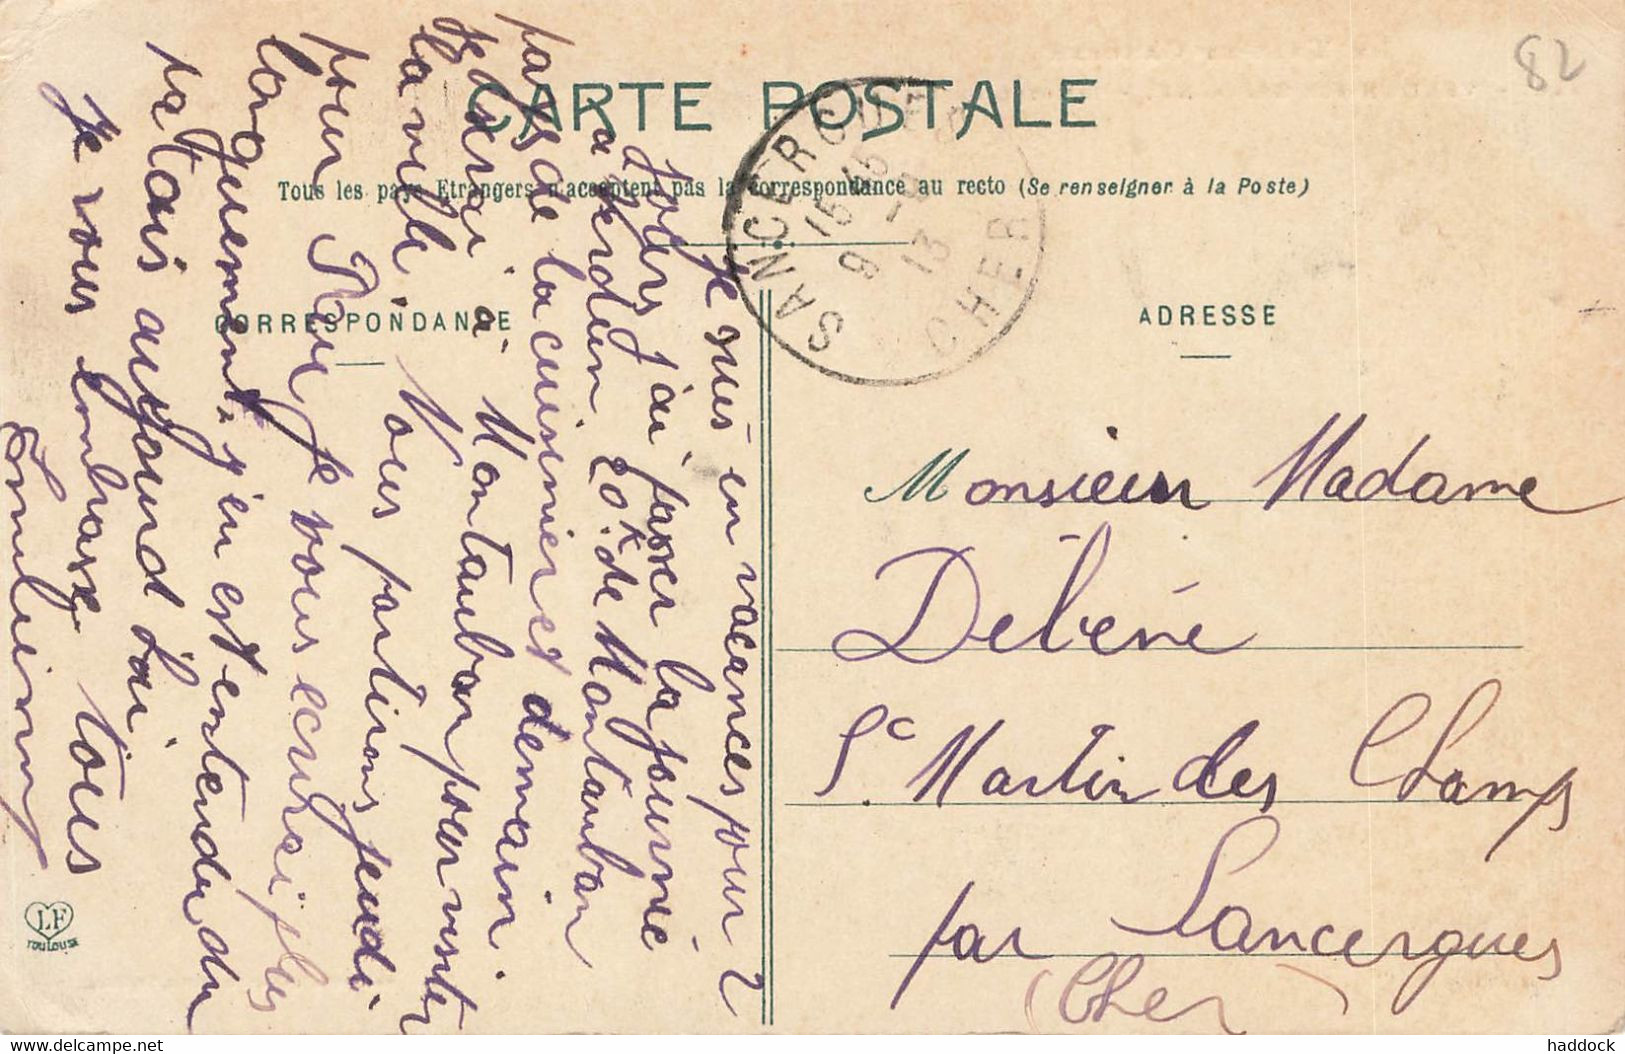 82
CARTE POSTALE
Tous les pays Etrangers n'acceptent pas la correspondance au recto (Se renseigner à la Poste)
SANCERGUES
15 45
9 -9
13
CHER
CORRESPONDANCE
ADRESSE
Je suis en vacances pour 2
jours j'ai passer la journée
a Verdun 20k. de Montauban
pays de la cuisinier et demain
je serai à Montauban pour visiter
la ville. Nous partirons jeudi
pour je vous ecurai plus
longuement, j'en est entendu du
patois aujourd'hui
Je vous embrasse tous
Monsieur Madame
Débéné
St. Martin des Champs
par Sancergues
(Cher)
LF
TOULOUSE
www.delcampe.net
haddock